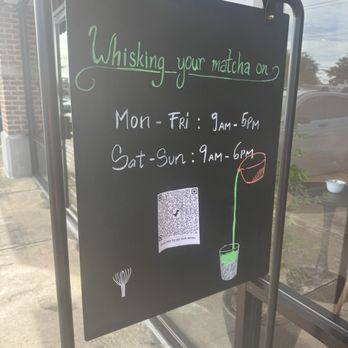 Whisking your matcha on
Mon - Fri : 9AM - 5PM
Sat - Sun : 9AM - 6PM